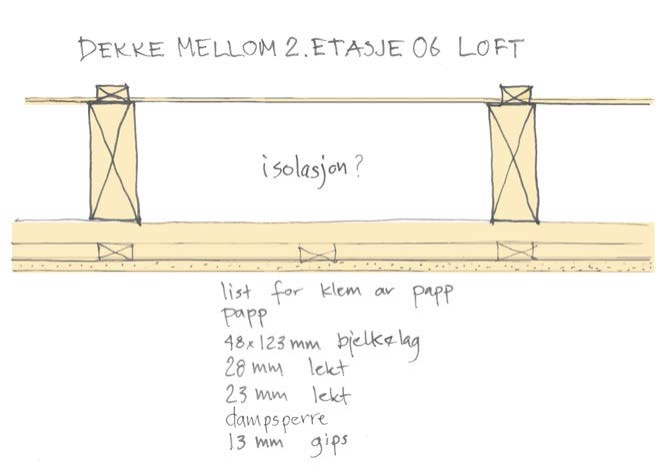 DEKKE MELLOM 2. ETASJE OG LOFT
isolasjon?
list for klem av papp
papp
48x123 mm bjelkelag
28 mm lekt
23 mm lekt
dampsperre
13 mm gips